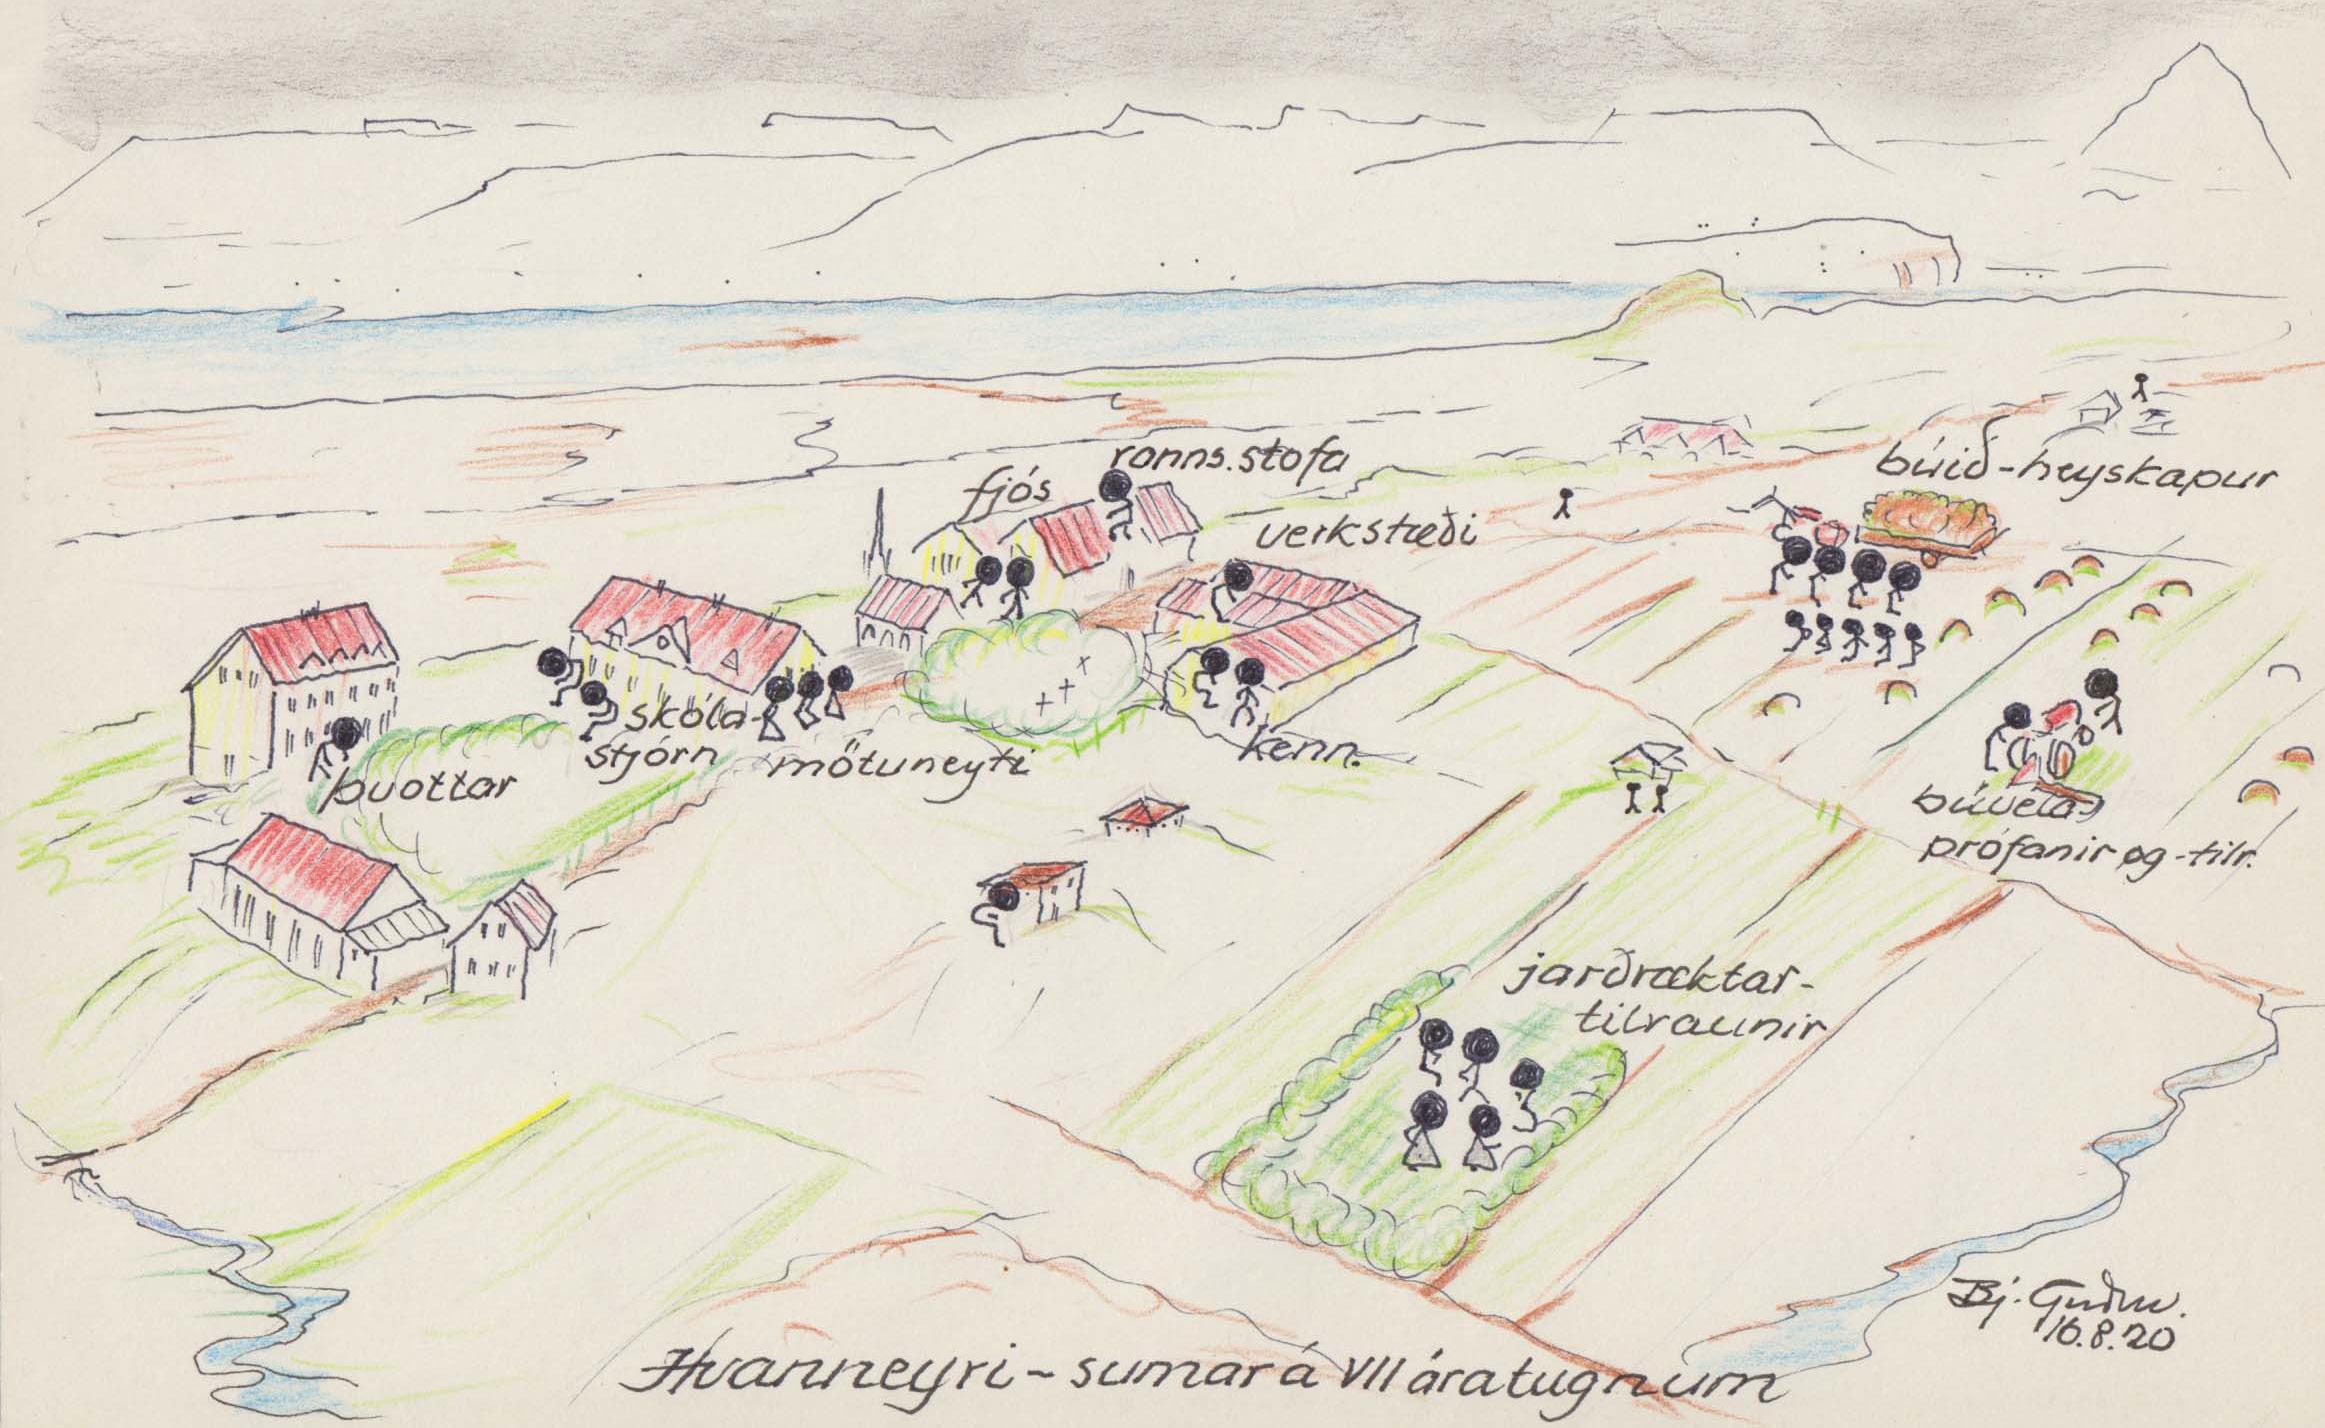 ranns.stofa
fjós
búið-heyskapur
verkstæði
skóla-
stjórn
mötuneyti
kenn.
þvottar
búvéla-
prófanir og -tilr.
jarðræktar-
tilraunir
Bj. Guðm.
16.8.20
Hvanneyri - sumar á VII áratugnum